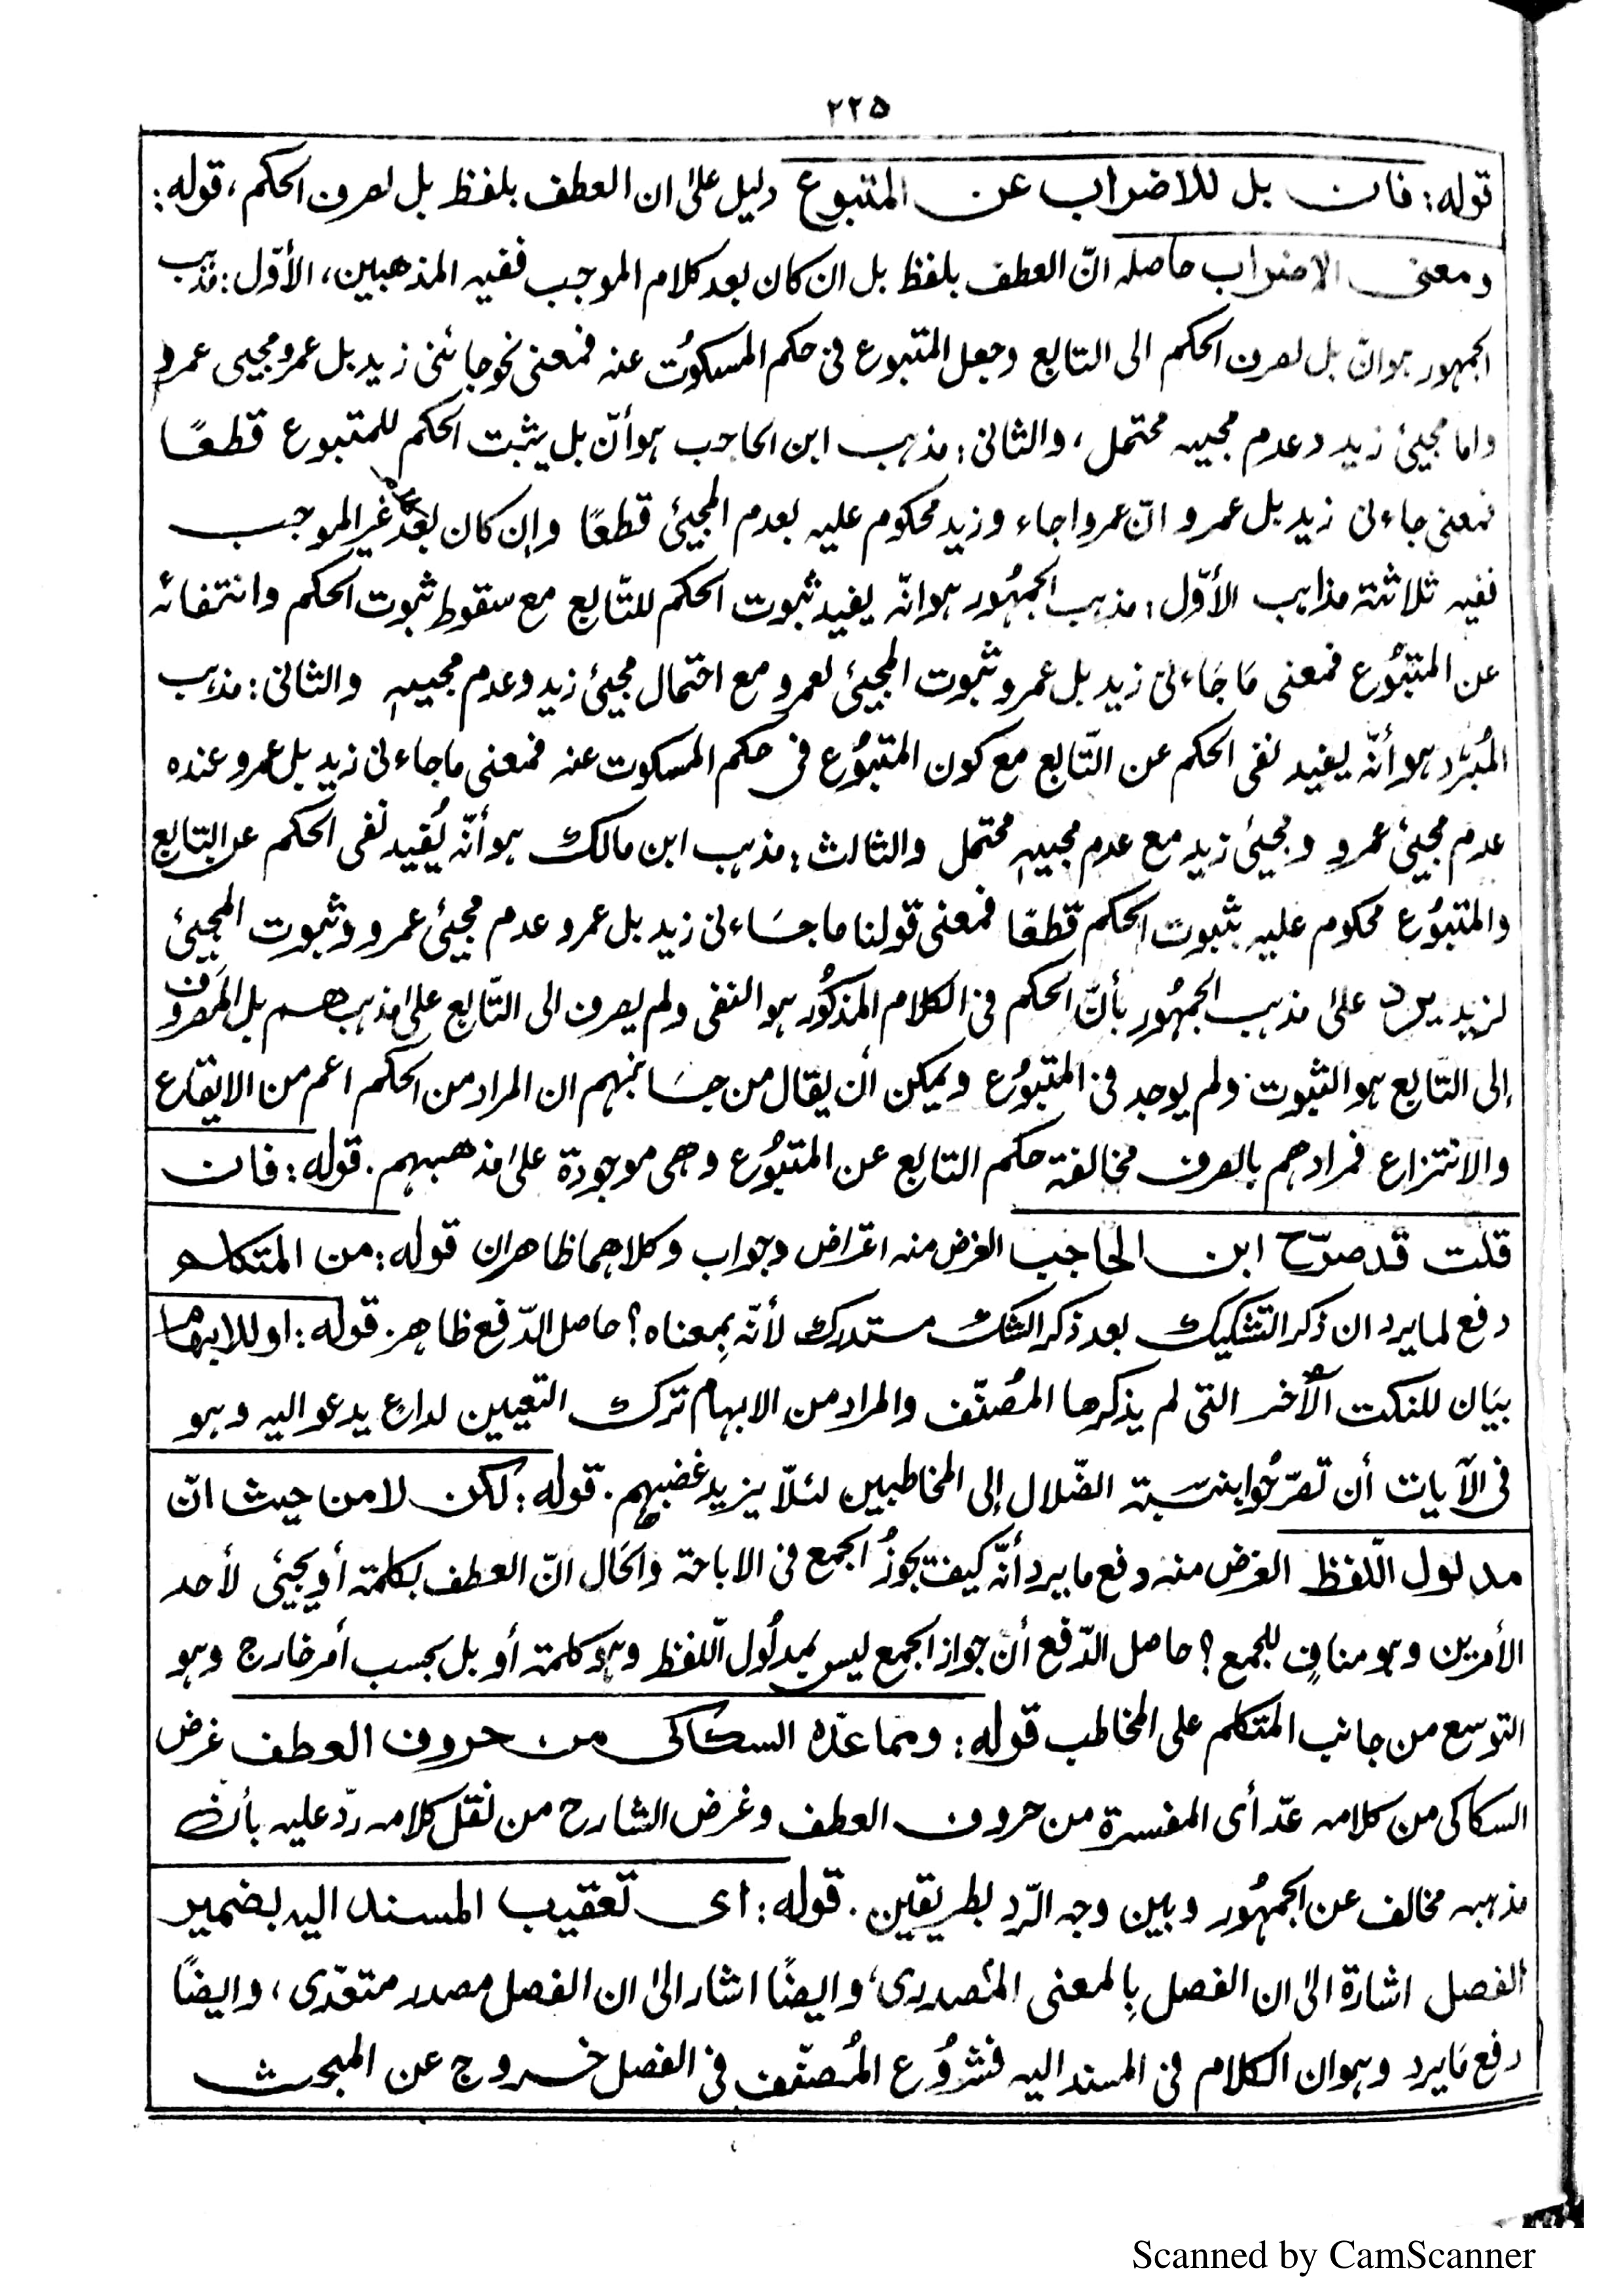 ۲۲۵
قوله: فان بل للاضراب عن المتبوع دليل على ان العطف بلفظ بل لصرف الحكم، قوله:
ومعنى الاضراب حاصله انّ العطف بلفظ بل ان كان بعد كلام الموجب ففيه المذهبين، الأوّل: مذهب
الجمهور هو انّ بل لصرف الحكم الى التابع وجعل المتبوع فى حكم المسكوُت عنه فمعنى نحو جائنى زيد بل عمرو مجيى عمرو
واما مجيئ زيد وعدم مجييه محتمل، والثانى: مذهب ابن الحاجب هو أنّ بل يثبت الحكم للمتبوع قطعًا
فمعنى جاءنى زيد بل عمرو انّ عمروا جاء وزيد محكوم عليه بعدم المجيئ قطعًا وإن كان بعد غير الموجب
ففيه ثلاثة مذاهب الأوّل: مذهب الجمهُور هو انّه يفيد ثبوت الحكم للتّابع مع سقوط ثبوت الحكم وانتفائه
عن المتبُوع فمعنى مَا جَاءنى زيد بل عمرو ثبوت المجيئ لعمرو مع احتمال مجيئ زيد وعدم مجييهٖ والثانى: مذهب
المُبرّد هو أنّه يفيد نفى الحكم عن التّابع مع كون المتبُوع فى حكم المسكوت عنه فمعنى ما جاءنى زيد بل عمرو عنده
عدم مجيئ عمرو ومجيئ زيد مع عدم مجييهٖ محتمل والثالث: مذهب ابن مالك هو أنّه يُفيد نفى الحكم عن التابع
والمتبوُع محكوم عليه بثبوت الحكم قطعًا فمعنى قولنا ما جَاءنى زيد بل عمرو عدم مجيئ عمرو وثبوت المجيئ
لزيد يرد على مذهب الجمهُور بأنّ الحكم فى الكلام المذكُور هو النفى ولم يصرف الى التّابع على مذهبهم بل المَصروف
إلى التّابع هو الثبوت ولم يوجد فى المتبوُع ويمكن أن يقال من جَانبهم ان المراد من الحكم اعم من الايقاع
والانتزاع فمرادهم بالصرف مخالفة حكم التابع عن المتبوُع وهى موجودة على مذهبهم. قوله: فان
قلت قد صرّح ابن الحاجب الغرض منه اعتراض وجواب وكلاهما ظاهران قوله: من المتكلم
دفع لما يرد ان ذكر التشكيك بعد ذكر الشك مستدرك لأنّه بِمعناه؟ حاصل الدّفع ظاهر. قوله: او للابهام
بيَان للنكت الأُخر التى لم يذكرها المُصنّف والمراد من الابهام ترك التعيين لداع يدعو اليه وهو
فى الآيات أن تصرّحُوا بنسَبة الضّلال إلى المخاطبين لئلّا يزيد غضبهم. قوله: لكن لا من حيث انّ
مدلول اللّفظ الغرض منه دفع ما يرد أنّه كيف يجوزُ الجمع فى الاباحة والحَال انّ العطف بكلمة أو يجيئى لأحد
الأمرين وهو منافٍ للجمع؟ حاصل الدّفع أن جواز الجمع ليس بمدلُول اللّفظ وهو كلمة أو بل بحسب أمر خارج وهو
التوسع من جانب المتكلم على المخاطب قوله: ومما عدّه السكاكى من حروف العطف غرض
السكاكى من كلامه عدّ أى المفسرة من حروف العطف وغرض الشارح من نقل كلامه ردّ عليه بأن
مذهبه مخالف عن الجمهُور وبين وجه الرّد بطريقين. قوله: اى تعقيب المسند اليه بضمير
الفصل اشارة الى ان الفصل بِالمعنى المَصدرى، وايضًا اشار الى ان الفصل مصدر متعدّى، وايضًا
دفع مَا يرد وهو ان الكلام فى المسند اليه فشروُع المُصنّف فى الفصل خروج عن المبحث
Scanned by CamScanner